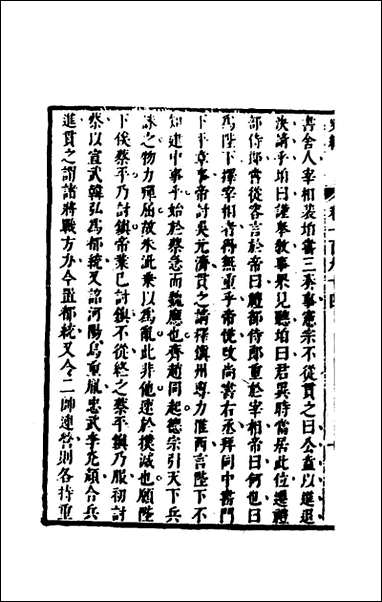 書舍人宰相裴垍嘗三奏事憲宗不從貫之曰公盍以進退
決請乎垍曰謹奉教事果見聽垍曰君異時當居此位遷禮
部侍郎嘗從容言於帝曰禮部侍郎重於宰相帝曰何也曰
爲陛下擇宰相者得無重乎帝悅改尚書右丞拜同中書門
下平章事帝討吳元濟貫之請釋鎮州專力淮西言陛下不
知建中事乎始於蔡急而魏應也齊趙同起德宗引天下兵
誅之物力殫屈故朱泚乘以爲亂此非他速於撲滅也願陛
下俟蔡平乃討鎮帝業已討鎮不從終之蔡平鎮乃服初討
蔡以宣武韓弘爲都統又詔河陽烏重胤忠武李光顔合兵
進貫之謂諸將戰方力今置都統又令二帥連營則各持重